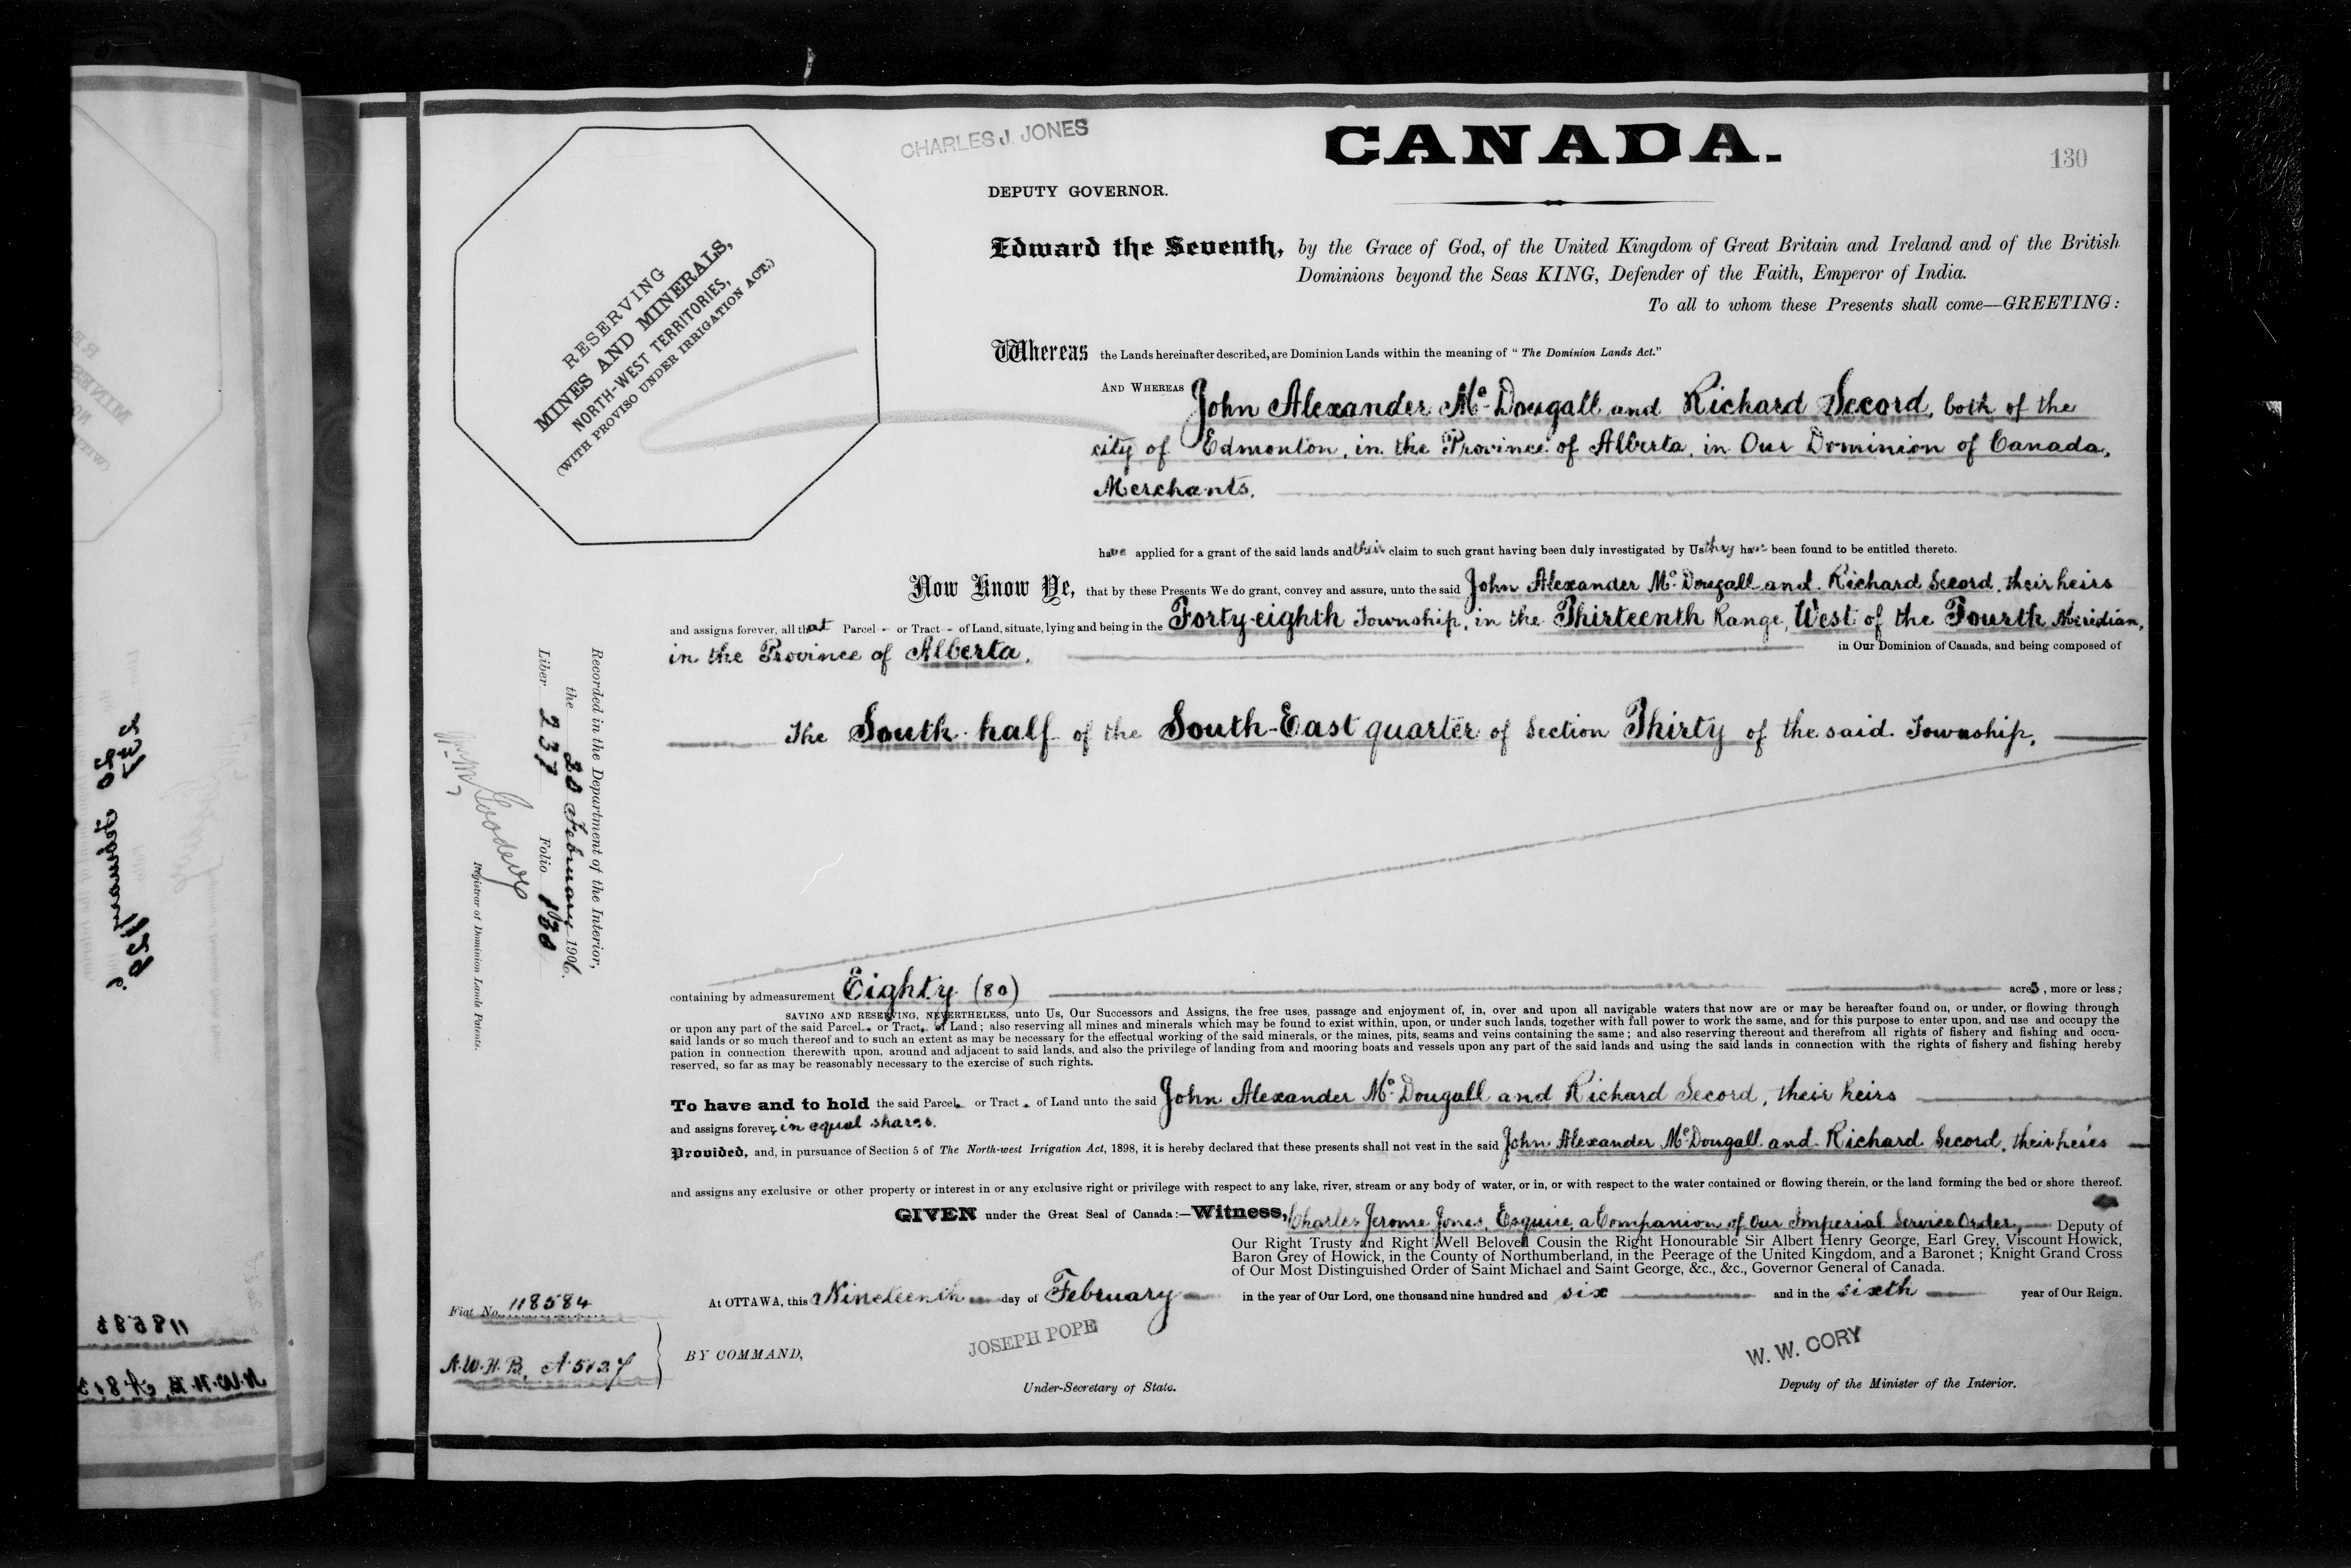 CHARLES J. JONES
CANADA.
130
DEPUTY GOVERNOR.
RESERVING
MINES AND MINERALS,
NORTH-WEST TERRITORIES,
(WITH PROVISO UNDER IRRIGATION ACT.)
Edward the Seventh, by the Grace of God, of the United Kingdom of Great Britain and Ireland and of the British
Dominions beyond the Seas KING, Defender of the Faith, Emperor of India.
To all to whom these Presents shall come—GREETING:
Whereas the Lands hereinafter described, are Dominion Lands within the meaning of "The Dominion Lands Act."
AND WHEREAS John Alexander McDougall and Richard Secord, both of the
city of Edmonton, in the Province of Alberta, in Our Dominion of Canada,
Merchants,
have applied for a grant of the said lands and their claim to such grant having been duly investigated by Us they have been found to be entitled thereto.
Now Know Ye, that by these Presents We do grant, convey and assure, unto the said John Alexander McDougall and Richard Secord, their heirs
and assigns forever, all that Parcel - or Tract - of Land, situate, lying and being in the Forty-eighth Township, in the Thirteenth Range, West of the Fourth Meridian,
in the Province of Alberta, in Our Dominion of Canada, and being composed of
The South half of the South-East quarter of Section Thirty of the said Township,
Recorded in the Department of the Interior,
the 20 February 1906.
Liber 237 Folio 130
Registrar of Dominion Lands Patents.
containing by admeasurement Eighty (80) acres, more or less;
SAVING AND RESERVING, NEVERTHELESS, unto Us, Our Successors and Assigns, the free uses, passage and enjoyment of, in, over and upon all navigable waters that now are or may be hereafter found on, or under, or flowing through
or upon any part of the said Parcel - or Tract - of Land; also reserving all mines and minerals which may be found to exist within, upon, or under such lands, together with full power to work the same, and for this purpose to enter upon, and use and occupy the
said lands or so much thereof and to such an extent as may be necessary for the effectual working of the said minerals, or the mines, pits, seams and veins containing the same; and also reserving thereout and therefrom all rights of fishery and fishing and occu-
pation in connection therewith upon, around and adjacent to said lands, and also the privilege of landing from and mooring boats and vessels upon any part of the said lands and using the said lands in connection with the rights of fishery and fishing hereby
reserved, so far as may be reasonably necessary to the exercise of such rights.
To have and to hold the said Parcel - or Tract - of Land unto the said John Alexander McDougall and Richard Secord, their heirs
and assigns forever, in equal shares.
Provided, and, in pursuance of Section 5 of The North-west Irrigation Act, 1898, it is hereby declared that these presents shall not vest in the said John Alexander McDougall and Richard Secord, their heirs
and assigns any exclusive or other property or interest in or any exclusive right or privilege with respect to any lake, river, stream or any body of water, or in, or with respect to the water contained or flowing therein, or the land forming the bed or shore thereof.
GIVEN under the Great Seal of Canada:—Witness, Charles Jerome Jones, Esquire, a Companion of Our Imperial Service Order, Deputy of
Our Right Trusty and Right Well Beloved Cousin the Right Honourable Sir Albert Henry George, Earl Grey, Viscount Howick,
Baron Grey of Howick, in the County of Northumberland, in the Peerage of the United Kingdom, and a Baronet; Knight Grand Cross
of Our Most Distinguished Order of Saint Michael and Saint George, &c., &c., Governor General of Canada.
At OTTAWA, this Nineteenth day of February in the year of Our Lord, one thousand nine hundred and six and in the sixth year of Our Reign.
Fiat No. 118584
N.W.H.B. A 5127
BY COMMAND,
JOSEPH POPE
Under-Secretary of State.
W. W. CORY
Deputy of the Minister of the Interior.